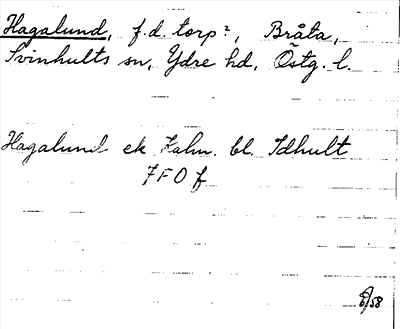 Hagalund, f.d. torp?, Bråta,
Svinhults sn, Ydre hd, Östg. l.
Hagalund ek Kalm. bl. Idhult
7 F O f
8/58